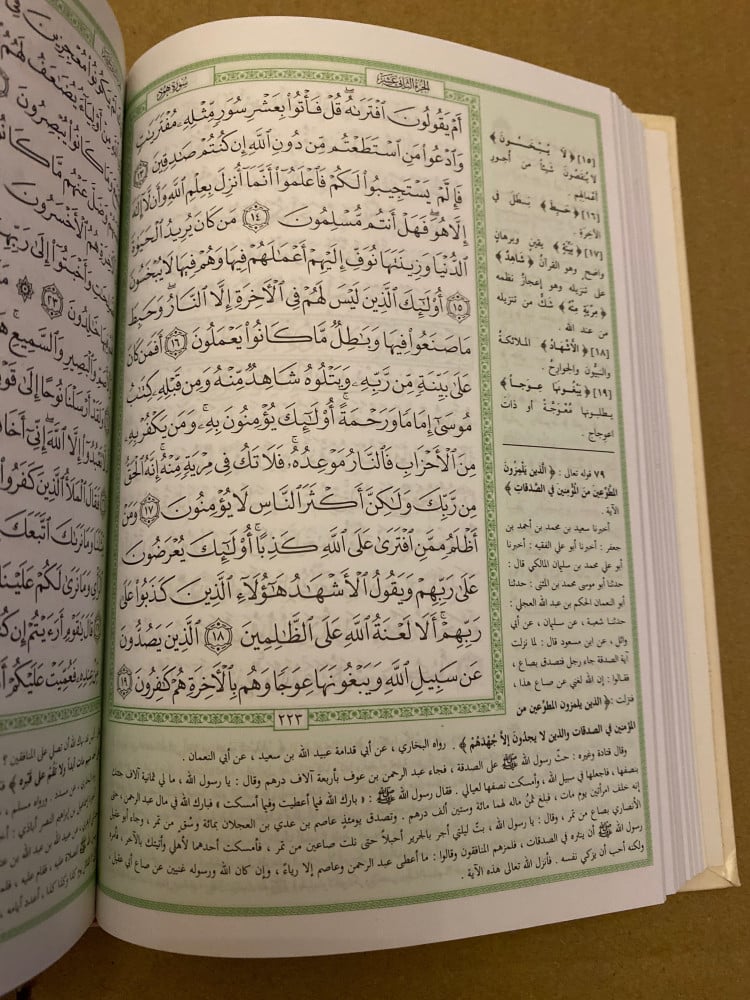 الجزء الثاني عشر
سورة هود
أَمْ يَقُولُونَ ٱفْتَرَىٰهُ ۖ قُلْ فَأْتُوا۟ بِعَشْرِ سُوَرٍ مِّثْلِهِۦ مُفْتَرَيَٰتٍ
وَٱدْعُوا۟ مَنِ ٱسْتَطَعْتُم مِّن دُونِ ٱللَّهِ إِن كُنتُمْ صَٰدِقِينَ ١٣
فَإِلَّمْ يَسْتَجِيبُوا۟ لَكُمْ فَٱعْلَمُوٓا۟ أَنَّمَآ أُنزِلَ بِعِلْمِ ٱللَّهِ وَأَن لَّآ إِلَٰهَ
إِلَّا هُوَ ۖ فَهَلْ أَنتُم مُّسْلِمُونَ ١٤ مَن كَانَ يُرِيدُ ٱلْحَيَوٰةَ
ٱلدُّنْيَا وَزِينَتَهَا نُوَفِّ إِلَيْهِمْ أَعْمَٰلَهُمْ فِيهَا وَهُمْ فِيهَا لَا يُبْخَسُونَ
١٥ أُو۟لَٰٓئِكَ ٱلَّذِينَ لَيْسَ لَهُمْ فِى ٱلْءَاخِرَةِ إِلَّا ٱلنَّارُ ۖ وَحَبِطَ
مَا صَنَعُوا۟ فِيهَا وَبَٰطِلٌ مَّا كَانُوا۟ يَعْمَلُونَ ١٦ أَفَمَن كَانَ
عَلَىٰ بَيِّنَةٍ مِّن رَّبِّهِۦ وَيَتْلُوهُ شَاهِدٌ مِّنْهُ وَمِن قَبْلِهِۦ كِتَٰبُ
مُوسَىٰٓ إِمَامًا وَرَحْمَةً ۚ أُو۟لَٰٓئِكَ يُؤْمِنُونَ بِهِۦ ۚ وَمَن يَكْفُرْ بِهِۦ
مِنَ ٱلْأَحْزَابِ فَٱلنَّارُ مَوْعِدُهُۥ ۚ فَلَا تَكُ فِى مِرْيَةٍ مِّنْهُ ۚ إِنَّهُ ٱلْحَقُّ
مِن رَّبِّكَ وَلَٰكِنَّ أَكْثَرَ ٱلنَّاسِ لَا يُؤْمِنُونَ ١٧ وَمَنْ
أَظْلَمُ مِمَّنِ ٱفْتَرَىٰ عَلَى ٱللَّهِ كَذِبًا ۚ أُو۟لَٰٓئِكَ يُعْرَضُونَ
عَلَىٰ رَبِّهِمْ وَيَقُولُ ٱلْأَشْهَٰدُ هَٰٓؤُلَآءِ ٱلَّذِينَ كَذَبُوا۟ عَلَىٰ
رَبِّهِمْ ۚ أَلَا لَعْنَةُ ٱللَّهِ عَلَى ٱلظَّٰلِمِينَ ١٨ ٱلَّذِينَ يَصُدُّونَ
عَن سَبِيلِ ٱللَّهِ وَيَبْغُونَهَا عِوَجًا وَهُم بِٱلْءَاخِرَةِ هُمْ كَٰفِرُونَ ١٩
٢٢٣
[١٥] ﴿ لَا يُبْخَسُونَ ﴾
لا يُنقصون شيئاً من أجور
أعمالهم .
[١٦] ﴿ حَبِطَ ﴾ بَطَل في
الآخرة .
[١٧] ﴿ بَيِّنَةٍ ﴾ يقين وبرهان
واضح وهو القرآن ﴿ شَاهِدٌ ﴾
على تنزيله وهو إعجاز نظمه
﴿ مِرْيَةٍ مِنْهُ ﴾ شَكٍّ من تنزيله
من عند الله .
[١٨] ﴿ الأَشْهَادُ ﴾ الملائكة
والنبيُّون والجوارح .
[١٩] ﴿ يَبْغُونَهَا عِوَجاً ﴾
يطلبونها مُعْوَجَّةً أو ذاتَ
اعوجاج .
٧٩ قوله تعالى : ﴿ الَّذِينَ يَلْمِزُونَ
المُطَّوِّعِينَ مِنَ المُؤْمِنِينَ في الصَّدَقَاتِ ﴾
الآية .
أخبرنا سعيد بن محمد بن أحمد بن
جعفر : أخبرنا أبو علي الفقيه : أخبرنا
أبو علي محمد بن سليمان المالكي قال :
حدثنا أبو موسى محمد بن المثنى : حدثنا
أبو النعمان الحكم بن عبد الله العجلي :
حدثنا شعبة ، عن سليمان ، عن أبي
وائل ، عن ابن مسعود قال : لما نزلت
آية الصدقة جاء رجل فتصدق بصاع ،
فقالوا : إن الله لغني عن صاع هذا ،
فنزلت : ﴿ الذين يلمزون المطوّعين من
المؤمنين في الصدقات والذين لا يجدون إلا جُهْدَهُمْ ﴾ . رواه البخاري ، عن أبي قدامة عبيد الله بن سعيد ، عن أبي النعمان .
وقال قتادة وغيره : حثّ رسول الله ﷺ على الصدقة ، فجاء عبد الرحمن بن عوف بأربعة آلاف درهم وقال : يا رسول الله ، ما لي ثمانية آلاف جئتك
بنصفها ، فاجعلها في سبيل الله ، وأمسكت نصفها لعيالي . فقال رسول الله ﷺ : « بارك الله لك فيما أعطيت وفيما أمسكت » فبارك الله في مال عبد الرحمن ، حتى
إنه خلف امرأتين يوم مات ، فبلغ ثمنُ ماله لهما مائة وستين ألف درهم . وتصدق يومئذٍ عاصم بن عدي بن العجلان بمائة وَسْقٍ من تمر ، وجاء أبو عقيل
الأنصاري بصاع من تمر ، وقال : يا رسول الله ، بتُّ ليلتي أجر بالجرير أحبلاً حتى نلت صاعين من تمر ، فأمسكت أحدهما لأهلي وأتيتك بالآخر ، فأمره
رسول الله ﷺ أن ينثره في الصدقات ، فلمزهم المنافقون وقالوا : ما أعطى عبد الرحمن وعاصم إلا رياءً ، وإن كان الله ورسوله غنيين عن صاع أبي عقيل ،
ولكنه أحب أن يزكي نفسه . فأنزل الله تعالى هذه الآية .